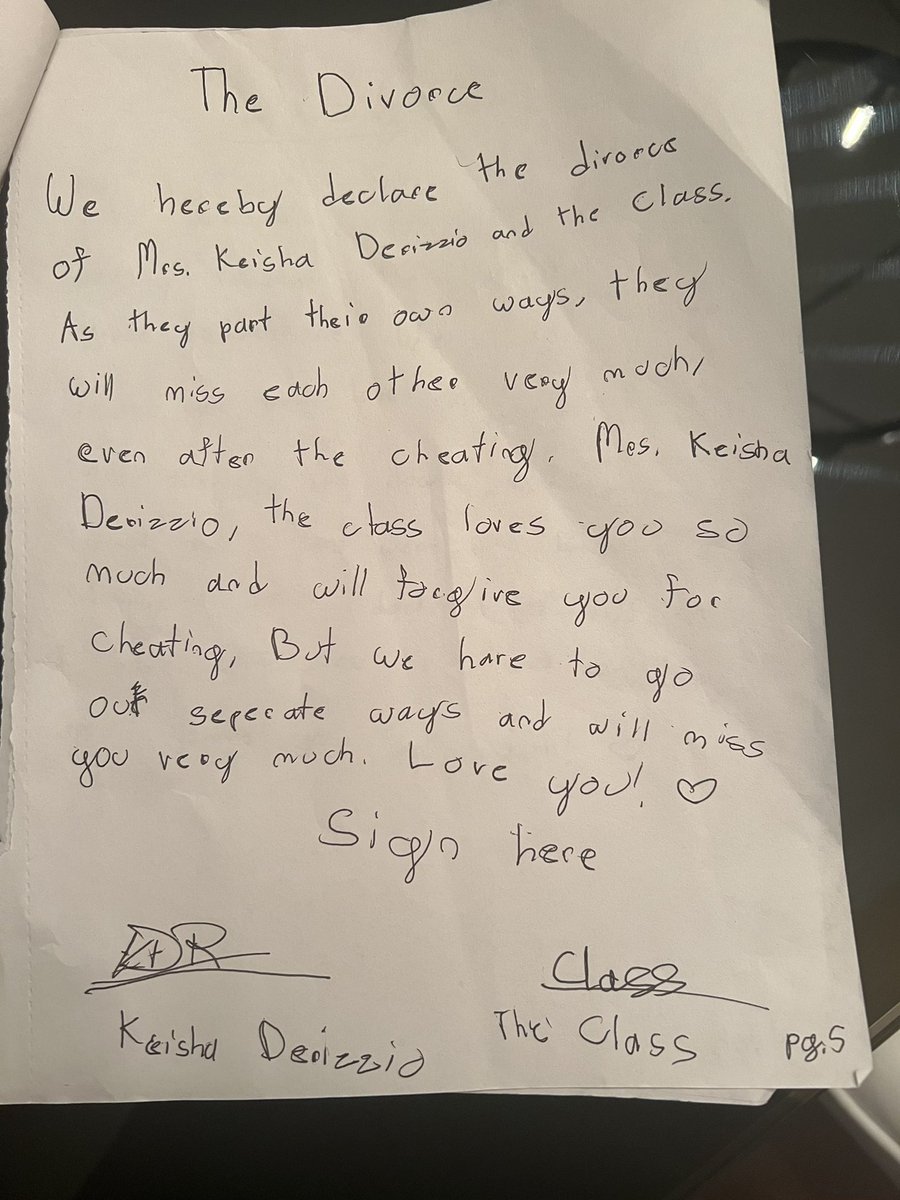 The Divorce
We hereby declare the divorce
of Mrs. Keisha Derizzio and the Class.
As they part their own ways, they
will miss each other very much,
even after the cheating. Mrs. Keisha
Derizzio, the class loves you so
much and will forgive you for
cheating, But we have to go
our seperate ways and will miss
you very much. Love you! ♡
Sign here
Class
Keisha Derizzio The Class pg.5